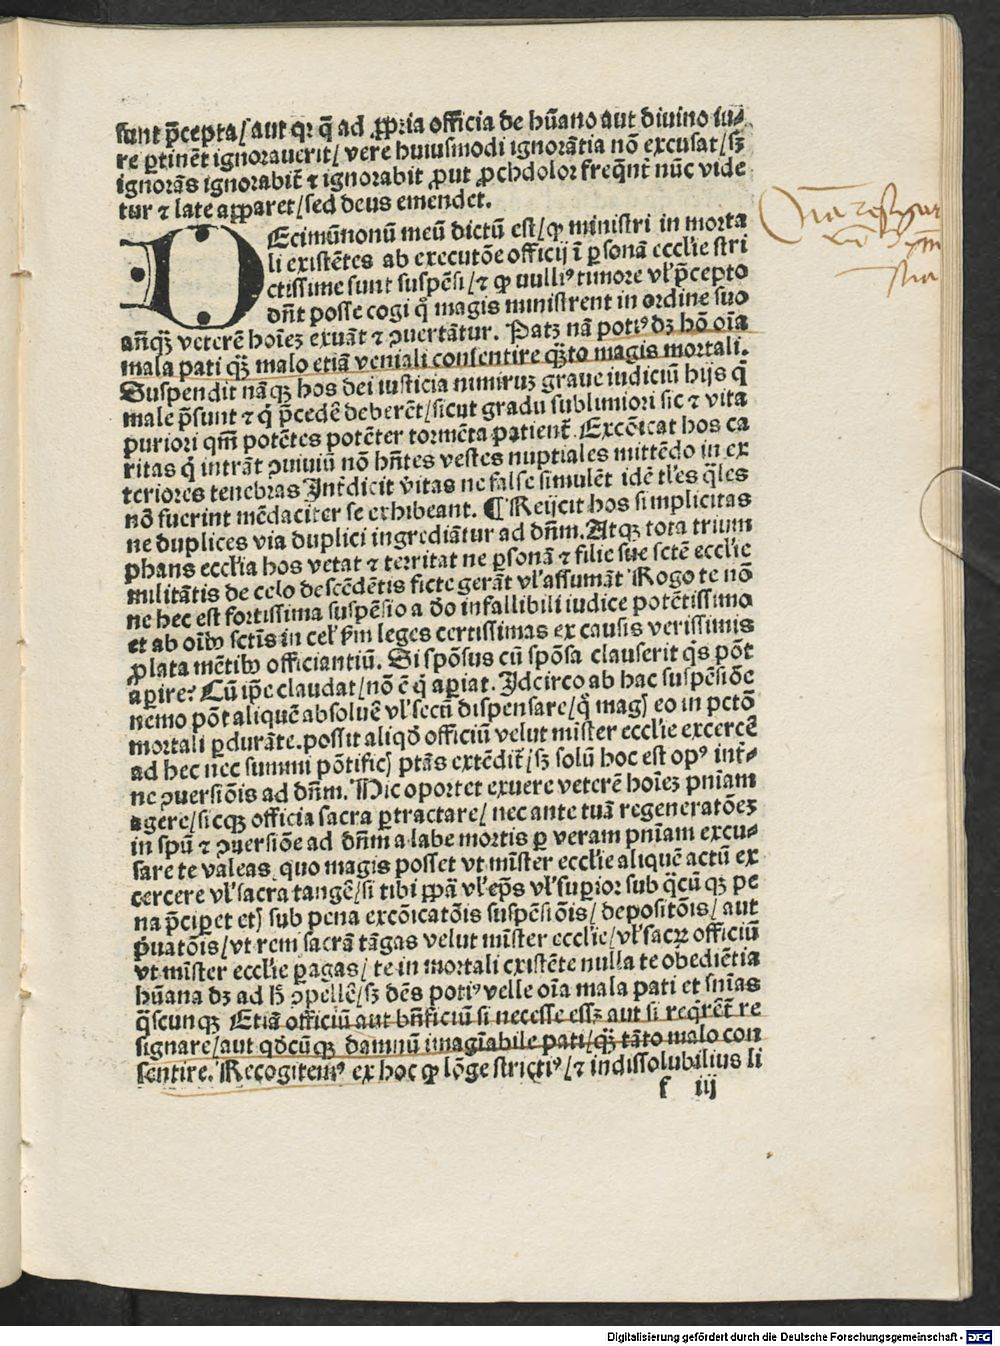 sunt p̄cepta/ aut qꝛ q̄ ad ꝓpria officia de hūano aut diuino iu⸗
re ꝑtinēt ignorauerit/ vere huiusmodi ignorātia nō excusat/ sꝫ
ignorās ignorabit̄ ⁊ ignorabit ꝓut ꝓchdolor freq̄nt̄ nūc vide
tur ⁊ late apparet/ sed deus emendet.
DEcimūnonū meū dictū est/ ꝙ ministri in morta
li existētes ab executōe officij ī ꝑsonā ecclīe stri
ctissime sunt suspēsi/ ⁊ ꝙ nulliꝰ timore vl̄ p̄cepto
dn̄t posse cogi qͦ magis ministrent in ordine suo
an̄qꝫ veterē hoīeꝫ exuāt ⁊ ꝯuertātur. Patꝫ nā potiꝰ dꝫ hō oīa
mala pati qꝫ̄ malo etiā veniali consentire qꝫ̄to magis mortali.
Suspendit nāqꝫ hos dei iusticia nimiruꝫ graue iudiciū hijs q̄
male p̄sunt ⁊ q̇ p̄cedē deberēt/ sicut gradu sublimiori sic ⁊ vita
puriori qm̄ potētes potēter tormēta patient̄. Excōicat hos ca
ritas q̇ intrāt ꝯuiuiū nō hn̄tes vestes nuptiales mittēdo in ex
teriores tenebras Int̄dicit v̄itas ne false simulēt idē tl̄es q̄les
nō fuerint mēdaciter se exhibeant. ¶ Reijcit hos simplicitas
ne duplices via duplici ingrediātur ad dn̄m. Atqꝫ tota trium
phans ecclīa hos vetat ⁊ territat ne ꝑsonā ⁊ filie sue sctē ecclīe
militātis de celo descēdētis ficte gerāt vl̄ assumāt Rogo te nō
ne hec est fortissima suspēsio a do infallibili iudice potētissimo
et ab oībꝰ sctīs in cel̄ fm̄ leges certissimas ex causis verissimis
ꝓlata mētibꝰ officiantiū. Si spōsus cū spōsa clauserit q̇s pōt
aꝑire? Cū ip̄e claudat/ nō ē q̇ aꝑiat. Idcirco ab hac suspēsiōe
nemo pōt aliquē absoluē vl̄ secū dispensare/ qͦ magꝭ eo in pctō
mortali ꝑdurāte. possit aliqd̄ officiū velut mīster ecclīe excercē
ad hec nec summi pōtificꝭ ptās extēdit̄/ sꝫ solū hoc est opꝰ int̄⸗
ne ꝯuersiōis ad dn̄m. Hic oportet exuere veterē hoīeꝫ pnīam
agere/ sicqꝫ officia sacra ꝑtractare/ nec ante tuā regeneratōeꝫ
in spū ⁊ ꝯuersiōe ad dn̄m a labe mortis ꝑ veram pnīam excu⸗
sare te valeas. quo magis posset vt mīster ecclīe aliquē actū ex
cercere vl̄ sacra tangē/ si tibi ꝓpā vl̄ ep̄s vl̄ suꝑior sub q̄cū qꝫ pe
na p̄ciꝑet etꝭ sub pena excōicatōis suspēsiōis/ depositōis/ aut
p̄uatōis/ vt rem sacrā tāgas velut mīster ecclīe/ vl̄ sacꝝ officiū
vt mīster ecclīe ꝑagas/ te in mortali existēte nulla te obediētia
hūana dꝫ ad h̄ ꝯpellē/ sꝫ dēs potiꝰ velle oīa mala pati et snīas
q̄scunqꝫ Etiā officiū aut bn̄ficiū si necesse essꝫ aut si reqͥrēt̄ re
signare/ aut qd̄cūqꝫ damnū imagiabile pati/ qꝫ̄ tāto malo con
sentire. Recogitemꝰ ex hoc ꝙ lōge strictiꝰ/ ⁊ indissolubilius li
f iij
Digitalisierung gefördert durch die Deutsche Forschungsgemeinschaft - DFG